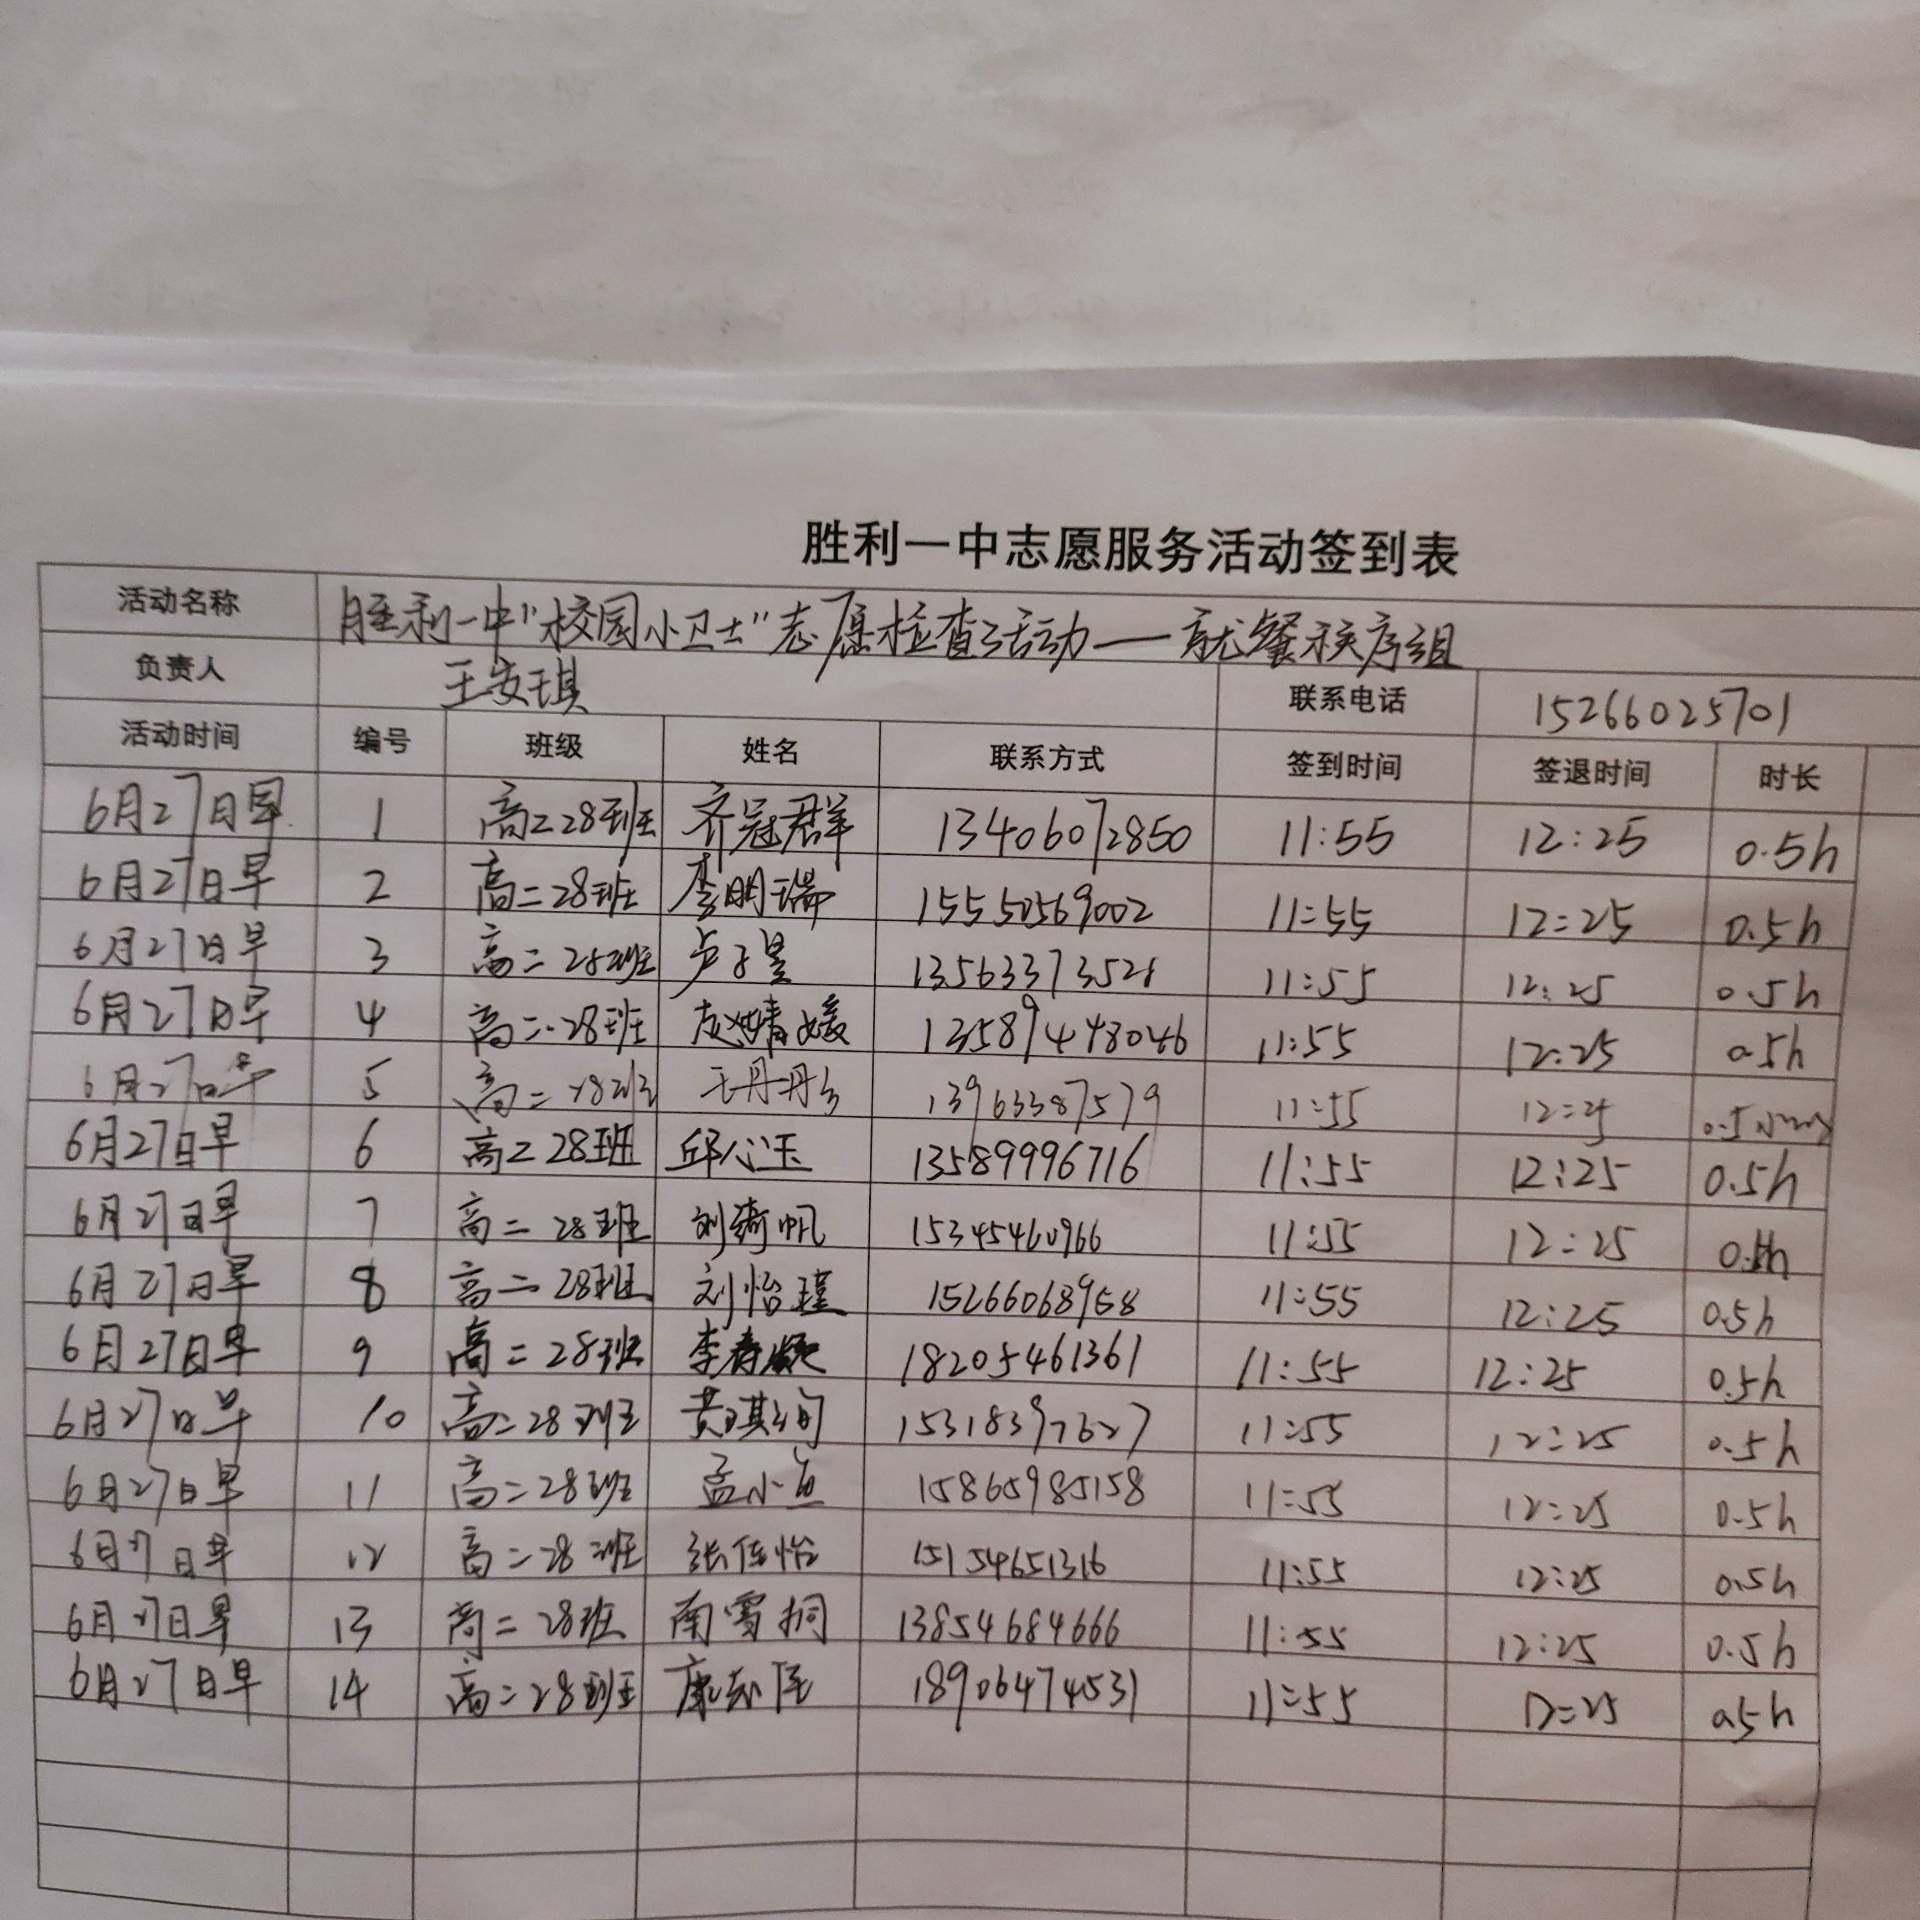 胜利一中志愿服务活动签到表
活动名称 胜利一中"校园小卫士"志愿检查活动——就餐秩序组
负责人 王安琪 联系电话 15266025701
活动时间 编号 班级 姓名 联系方式 签到时间 签退时间 时长
6月27日早 1 高二28班 齐冠群 13406072850 11:55 12:25 0.5h
6月27日早 2 高二28班 李明瑞 15550569002 11:55 12:25 0.5h
6月27日早 3 高二28班 卢子昱 11:55 12:25 0.5h
6月27日早 4 高二28班 赵婧媛 11:55 12:25 0.5h
6月27日早 5 高二28班 王丹丹 13963387579 11:55 12:25
6月27日早 6 高二28班 邱心玉 13589996716 11:55 12:25 0.5h
6月27日早 7 高二28班 刘绮帆 15345460966 11:55 12:25 0.5h
6月27日早 8 高二28班 刘怡瑾 15266068958 11:55 12:25 0.5h
6月27日早 9 高二28班 李春 18205461361 11:55 12:25 0.5h
6月27日早 10 高二28班 黄琪 11:55 12:25 0.5h
6月27日早 11 高二28班 孟小鱼 15865985158 11:55 12:25 0.5h
6月27日早 12 高二28班 张佳怡 15154651316 11:55 12:25 0.5h
6月27日早 13 高二28班 南雪桐 13854684666 11:55 12:25 0.5h
6月27日早 14 高二28班 18906474531 11:55 12:25 0.5h